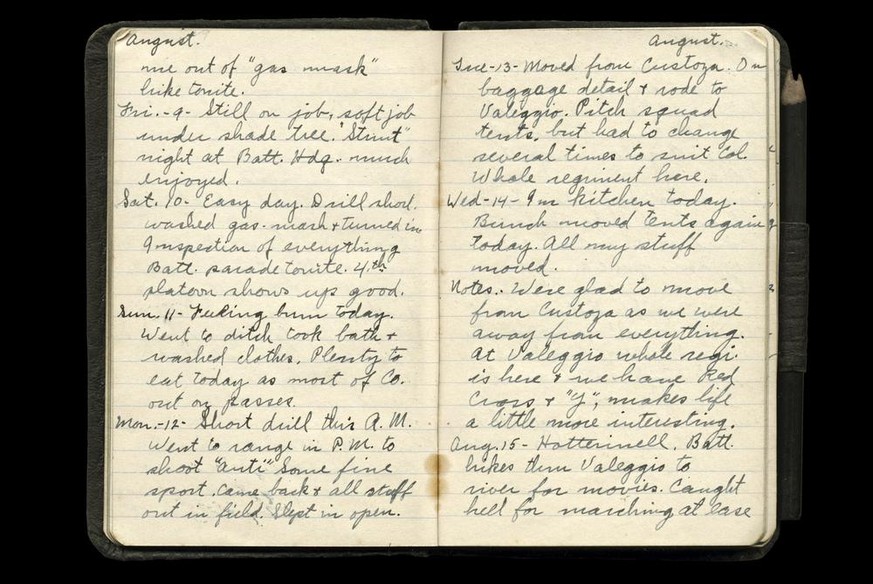 August.
me out of "gas mask"
hike tonite.
Fri.-9- Still on job, soft job
under shade tree. "Stunt"
night at Batt. Hdq. much
enjoyed.
Sat. 10- Easy day. Drill short.
washed gas-mask & turned in
Inspection of everything
Batt. parade tonite. 4th
platoon shows up good.
Sun. 11- Feeling bum today.
Went to ditch took bath &
washed clothes. Plenty to
eat today as most of Co.
out on passes.
Mon.-12- Short drill this A.M.
Went to range in P.M. to
shoot "anti" Some fine
sport. Came back & all stuff
out in field. Slept in open.
August.
Tue-13- Moved from Custoza. On
baggage detail & rode to
Valeggio. Pitch squad
tents, but had to change
several times to suit Col.
Whole regiment here.
Wed-14- In kitchen today.
Bunch moved tents again
today. All my stuff
moved.
Notes.. Were glad to move
from Custoza as we were
away from everything.
At Valeggio whole regi-
is here & we have Red
Cross & "Y", makes life
a little more interesting.
Aug. 15- Hotterinell. Batt.
hikes thru Valeggio to
river for movies. Caught
hell for marching at ease